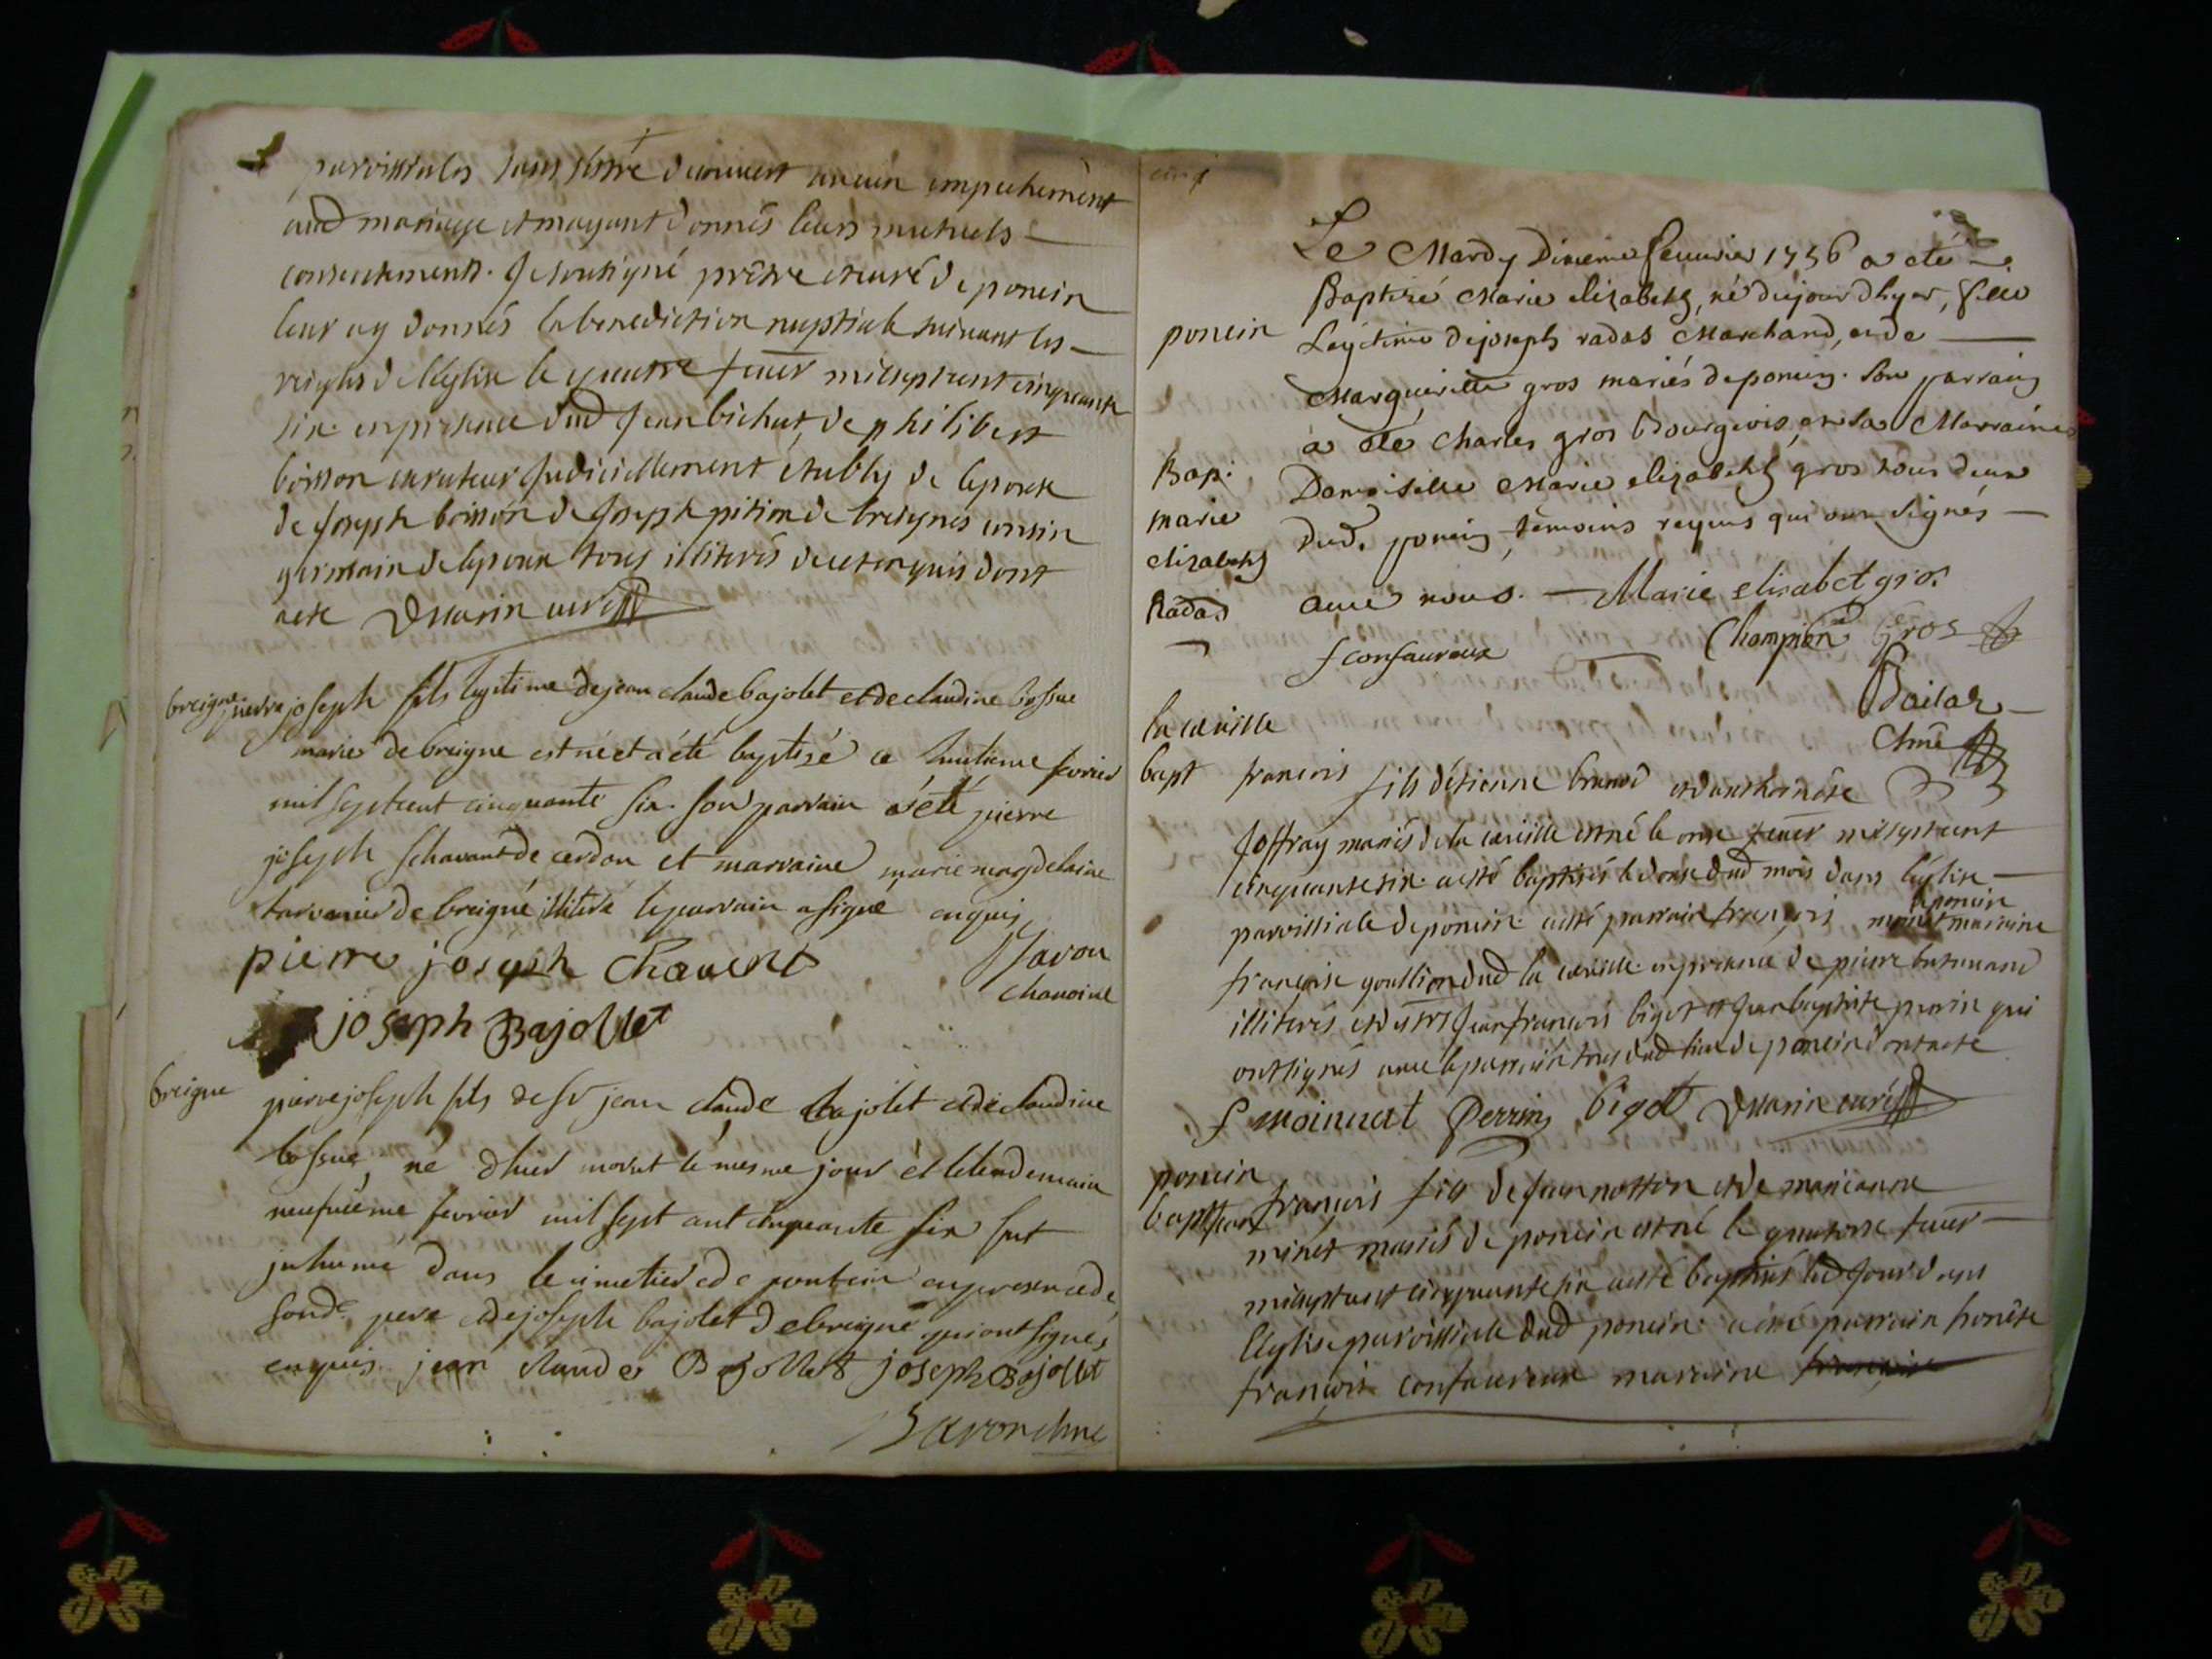 parroissiales sans s'être decouvert aucun empechement
aud mariage et m'ayant donnés leurs mutuels
consentements. Je soussigné prêtre et curé de poncin
leur ay donnés la benediction nuptiale suivant les
reigles de l'église le quatre fevr mil sept cent cinquante
six. en presence dud Jean bichat, de philibert
boisson curateur judiciellement étably de l'epouse
de Joseph boisson de Joseph pition de breignes cousin
germain de l'epoux tous illiterés de ce enquis dont
acte Dmarin curé
breigne pierre joseph fils legitime de jean claude bajolet et de claudine bossue
mariés de breigne est né et a été baptizé ce huitieme fevrier
mil sept cent cinquante six. son parrain a été pierre
joseph chavant de cerdon et marraine marie magdelaine
tavernier de breigne illiteré le parrain a signé enquis
pierre joseph Chavent Savon
chanoine
joseph Bajollet
breigne pierre joseph fils de sr jean claude bajolet et de claudine
bossue, né d'hier morut le mesme jour et le lendemain
neufvième fevrier mil sept cent cinquante six fut
inhumé dans le cimetier de pontcin en presence de
sond. pere et de joseph bajolet de breigne qui ont signés
enquis. jean claude Bajollet joseph Bajollet
Savon chne
cinq
Le Mardy Dixieme feuvrier 1756 a eté
Baptizé Marie elizabeth, né du jour d'hyer, fille
poncin Legitime de joseph radas Marchand, et de
Marguerite gros mariés de poncin. Son parrain
a eté Charles gros Bourgeois, et sa Marraine
Bap. Damoiselle Marie elizabeth gros tous deux
marie dud. poncin, temoins requis qui ont signés
elizabeth
Radas avec nous. Marie elisabet gros
f confavreux Champion Gros
Boilar
Chne
la cueille
bapt francois fils d'étienne brunod et d'anthoinete
Joffray mariés de la cueille est né le onze fevr mil sept cent
cinquante six. a esté baptisés le douze dud mois dans l'église
parroissiale de poncin. a esté parrain françois moinat de poncin marraine
françoise goullion dud la cueille. en presence de pierre
illiterés et de srs Jean francois bigot et Jean baptiste perrin qui
ont signés avec le parrain tous dud lieu de poncin dont acte
f moinnat Perrin bigot Dmarin curé
poncin
bapt Jean françois fils de Jean notton et de marianne
minet mariés de poncin est né le quatorze fevr
mil sept cent cinquante six a esté baptisés led jour dans
l'église parroissiale dud poncin. a été parrain honête
françois confavreux maraine françoise